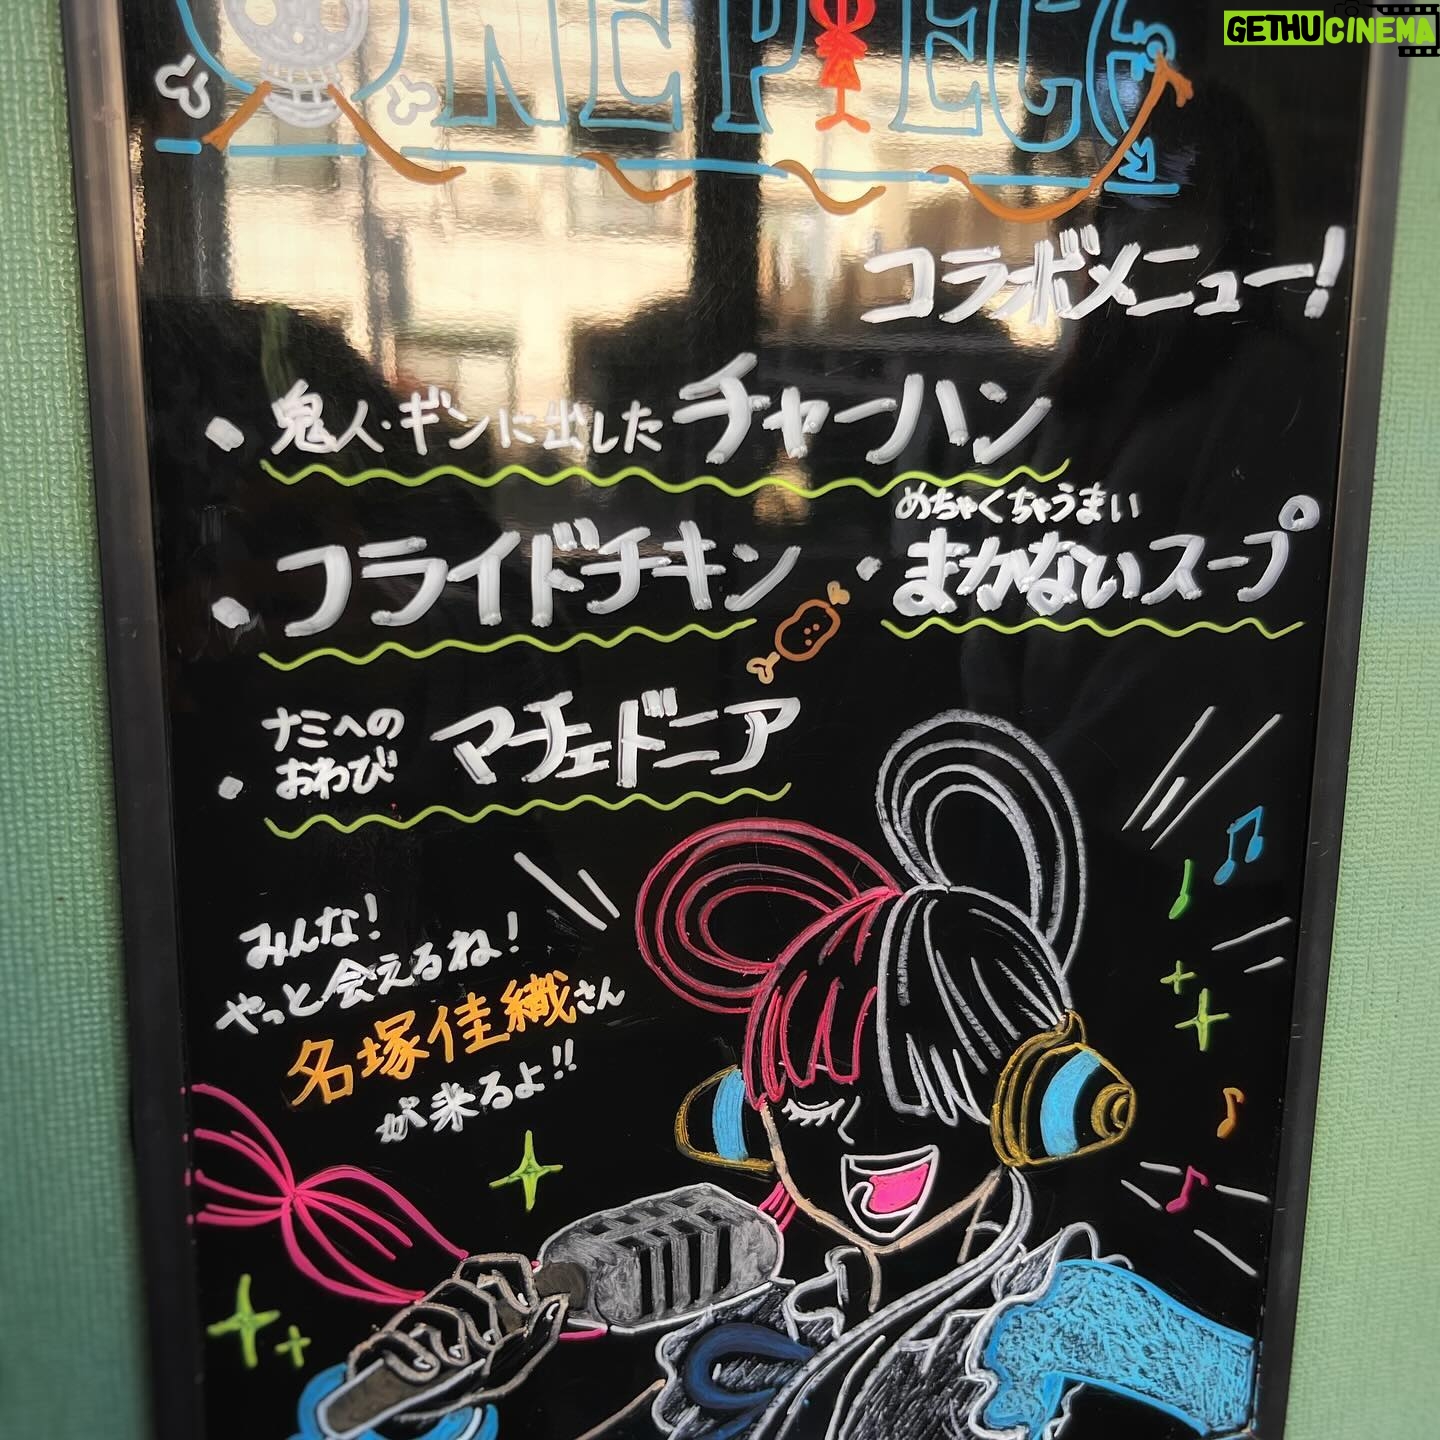 GETHUCINEMA
ONE PIECE
コラボメニュー!
・鬼人・ギンに出したチャーハン
・フライドチキン
めちゃくちゃうまい
・まかないスープ
・ナミへの
おわび
マチェドニア
みんな!
やっと会えるね!
名塚佳織さん
が来るよ!!